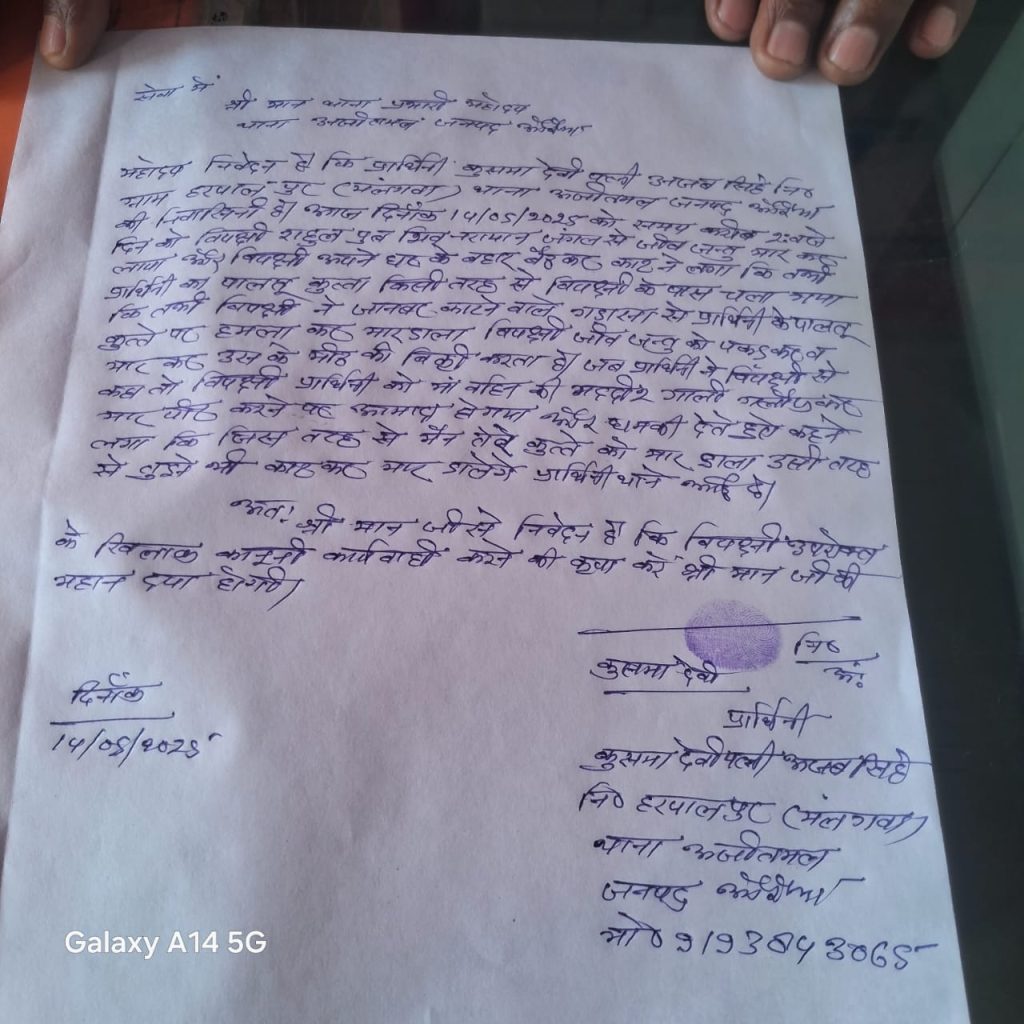 सेवा में
श्री मान थाना प्रभारी महोदय
थाना अजीतमल जनपद औरैया
महोदय निवेदन है कि प्रार्थिनी कुसमा देवी पत्नी अजब सिंह नि०
ग्राम हरपाल पुर (मंलगवा) थाना अजीतमल जनपद औरैया
की निवासिनी है। आज दिनाँक 14/05/2025 को समय करीब 2:बजे
दिन को विपक्षी राहुल पुत्र शिव नरायान जंगल से जीव जन्तु मार कर
लाया और विपक्षी अपने घर के बहार बैठ कर काटने लगा कि तभी
प्रार्थिनी का पालतू कुत्ता किसी तरह से विपक्षी के पास चला गया
कि तभी विपक्षी ने जानबर काटने वाले गडासा से प्रार्थिनी के पालतू
कुत्ते पर हमला कर मारडाला विपक्षी जीव जन्तु को पकड कर व
मार कर उस के मीट की बिक्री करता है। जब प्रार्थिनी ने विपक्षी से
कहा तो विपक्षी प्रार्थिनी को मां बहिन की गाली
मार पीट करने पर आमादा हो गया और धमकी देते हुए कहने
लगा कि जिस तरह से मैंन तेरे कुत्ते को मार डाला उसी तरह
से तुझे भी काट कर मार डालेंगे प्रार्थिनी थाने आई है।
अतः श्री मान जी से निवेदन है कि विपक्षी उपरोक्त
के खिलाफ कानूनी कार्यवाही करने की कृपा करें श्री मान जी की
महान दया होगी।
नि०
अं०
कुसमा देवी
दिनाँक
14/05/2025
प्रार्थिनी
कुसमा देवी पत्नी अजब सिंह
नि० हरपाल पुर (मंलगवा)
थाना अजीतमल
जनपद औरैया
मो० 9193043065
Galaxy A14 5G